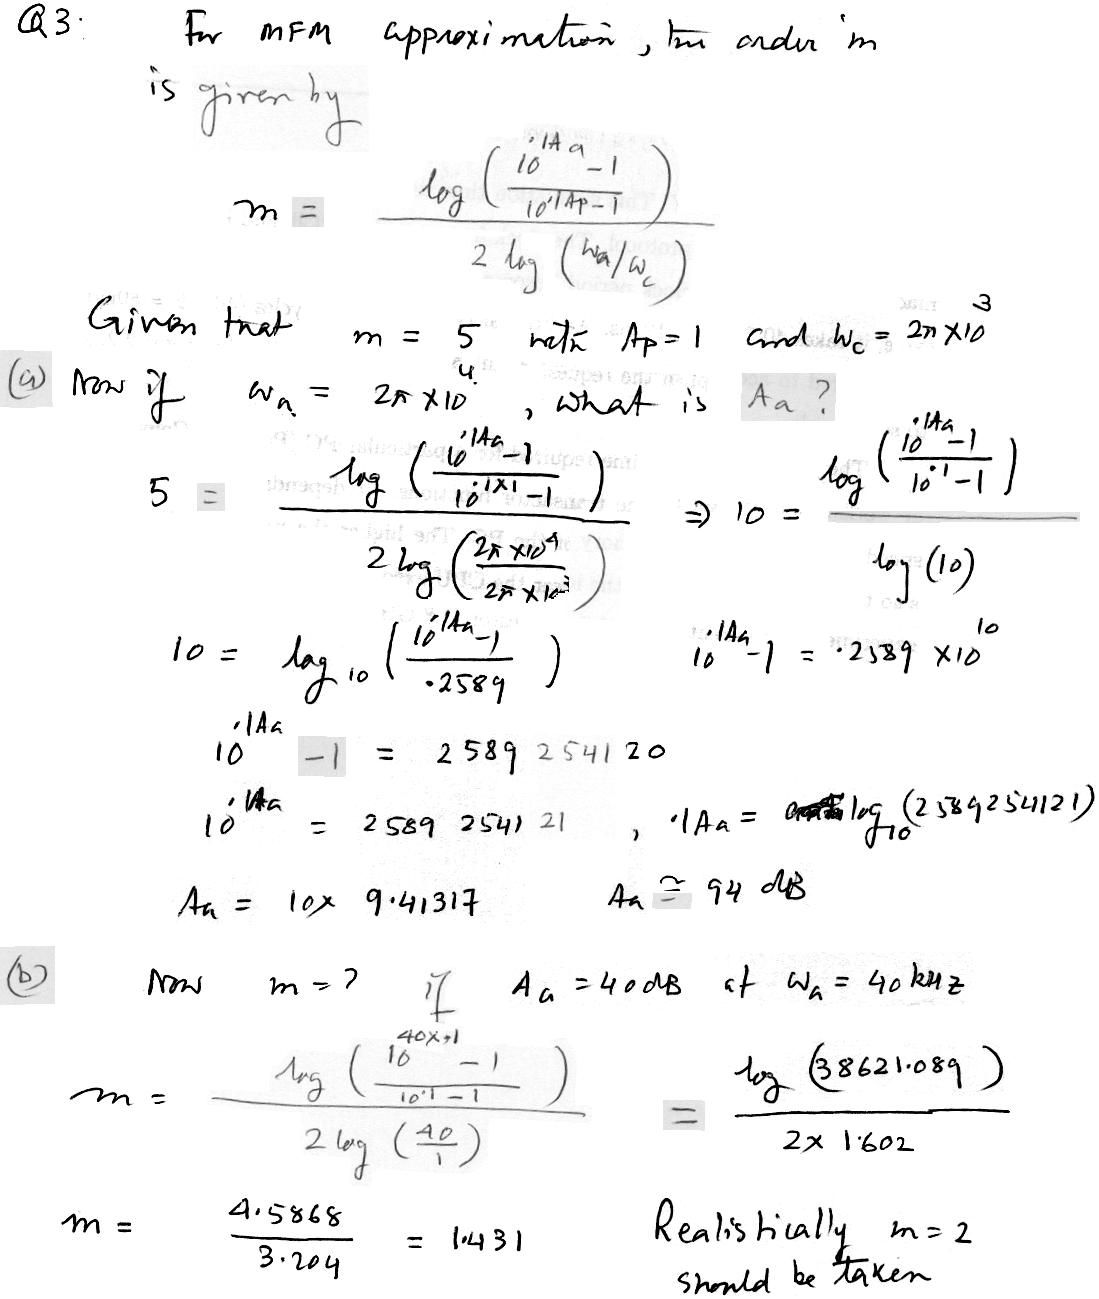 Q3: For MFM approximation, the order m
is given by
m = log ( (10^{.1Aa} - 1) / (10^{.1Ap} - 1) ) / 2 log (ωa/ωc)
Given that m = 5 with Ap = 1 and ωc = 2π × 10^3
(a) Now if ωa = 2π × 10^4, what is Aa?
5 = log ( (10^{.1Aa} - 1) / (10^{.1×1} - 1) ) / 2 log ( (2π × 10^4) / (2π × 10^3) ) ⇒ 10 = log ( (10^{.1Aa} - 1) / (10^{.1} - 1) ) / log (10)
10 = log_{10} ( (10^{.1Aa} - 1) / .2589 ) 10^{.1Aa} - 1 = .2589 × 10^{10}
10^{.1Aa} - 1 = 2589 2541 20
10^{.1Aa} = 2589 2541 21 , .1Aa = log_{10} (2589254121)
Aa = 10 × 9.41317 Aa ≅ 94 dB
(b) Now m = ? if Aa = 40 dB at ωa = 40 kHz
m = log ( (10^{40×.1} - 1) / (10^{.1} - 1) ) / 2 log (40/1) = log (38621.089) / 2 × 1.602
m = 4.5868 / 3.204 = 1.431 Realistically m = 2
should be taken